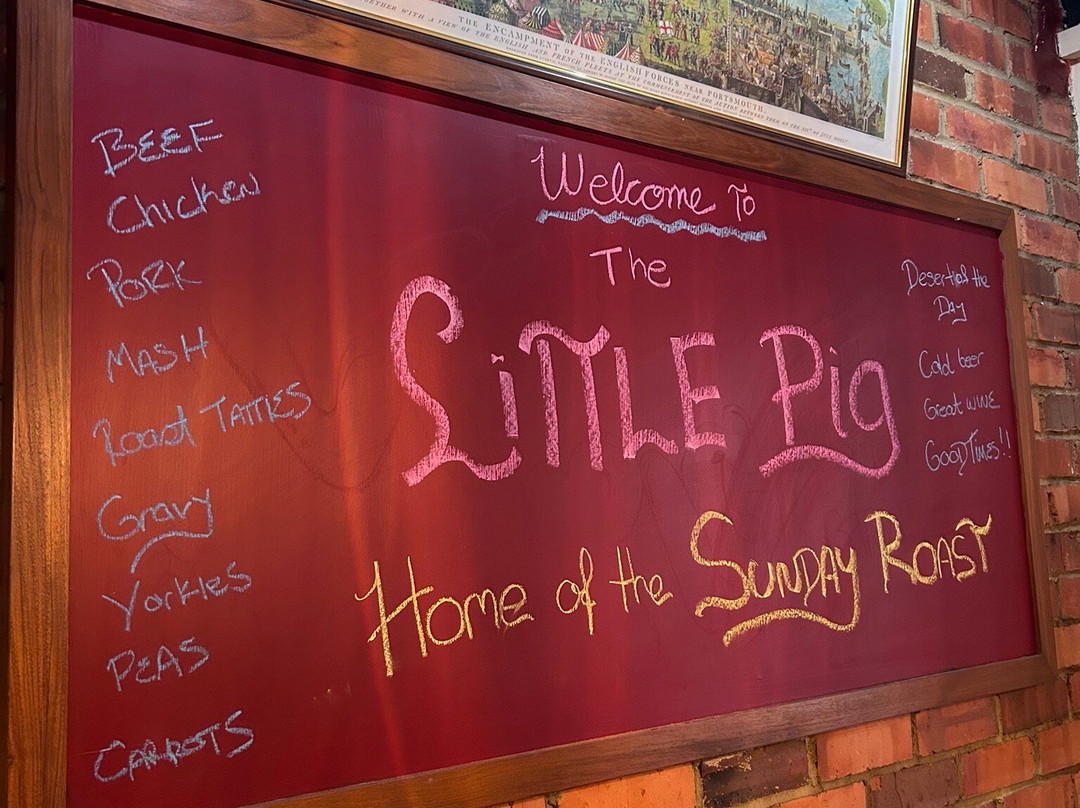 TOGETHER WITH A VIEW OF THE ENGLISH AND FRENCH FLEETS AT THE COMMENCEMENT OF THE ACTION BETWEEN THEM ON THE
THE ENCAMPMENT OF THE ENGLISH FORCES NEAR PORTSMOUTH,
BEEF
Chicken
PORK
MASH
Roast TATTIES
Gravy
Yorkies
PEAS
CARROTS
Welcome To
The
LiTTLE Pig
Home of the SUNDAY ROAST
Desert of the
Day
Cold beer
Great WINE
GOOD TIMES!!